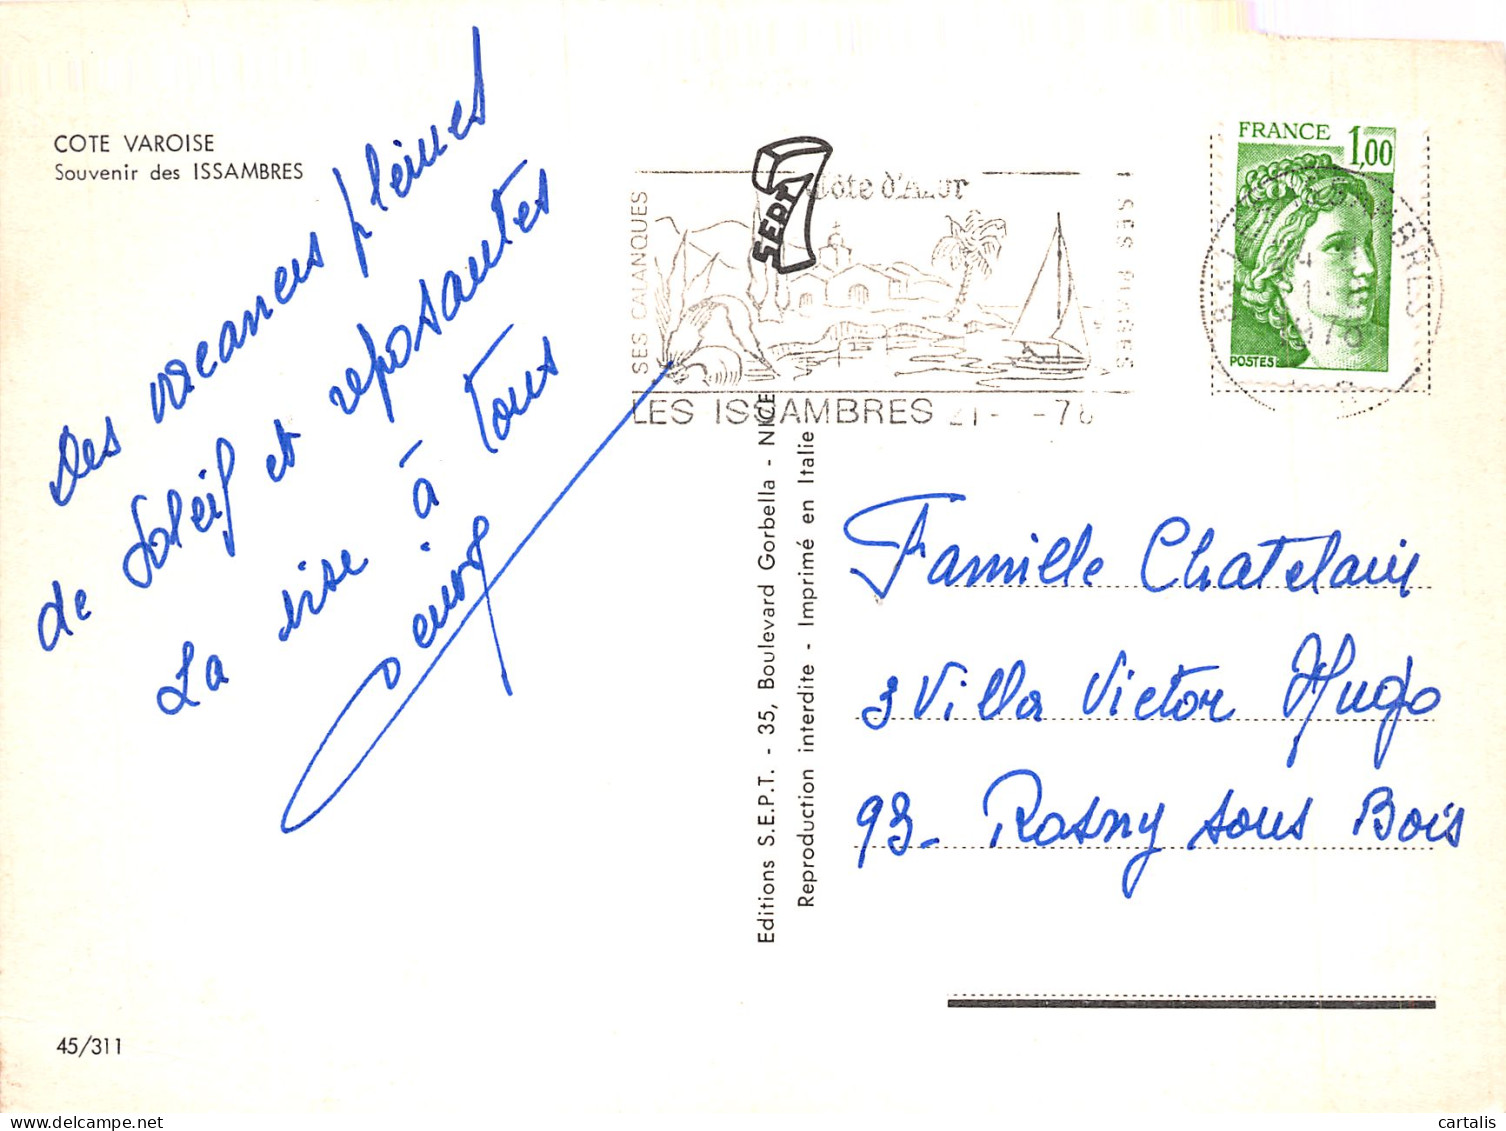 COTE VAROISE
Souvenir des ISSAMBRES
Des vacances pleines
de Soleil et reposantes
La bise à tous
45/311
Editions S.E.P.T. - 35, Boulevard Gorbella - NICE
Reproduction interdite - Imprimé en Italie
SEPT
Côte d'Azur
SES CALANQUES
SES PLAGES
LES ISSAMBRES 21- -78
FRANCE 1,00
POSTES
1978
Famille Chatelain
3 Villa Victor Hugo
93- Rosny sous Bois
delcampe.net
cartalis